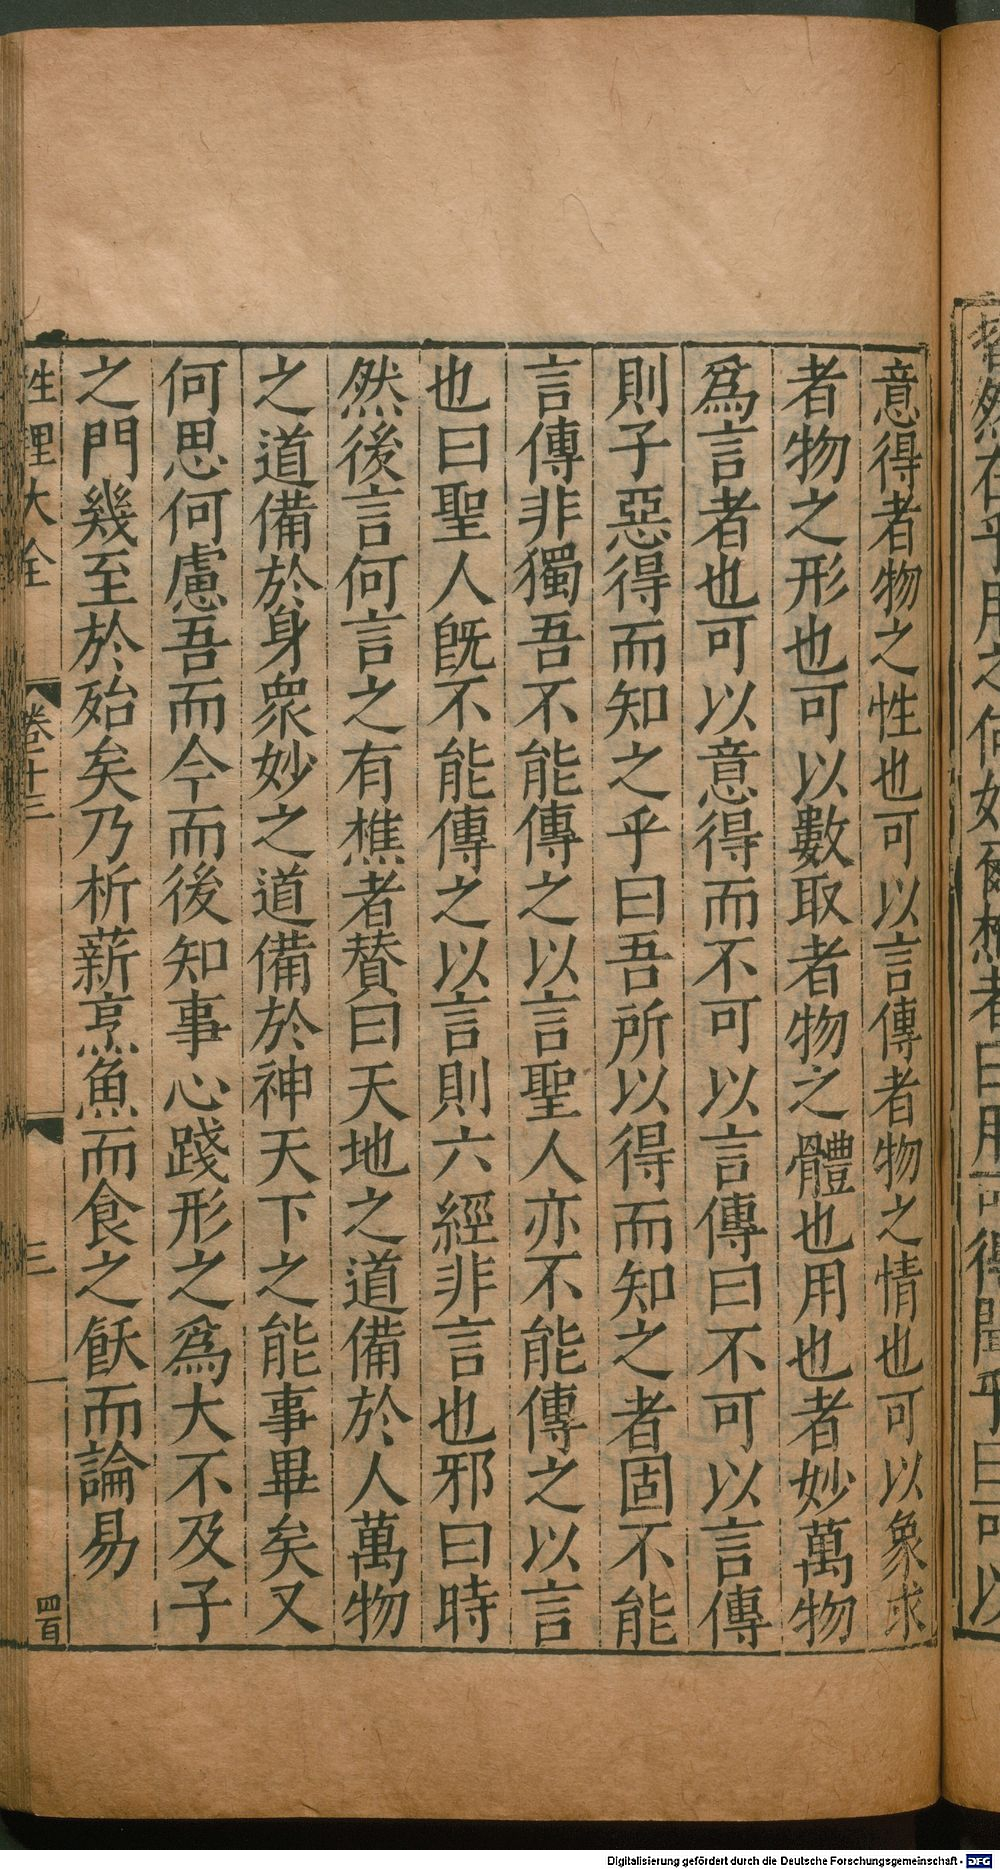 意得者物之性也可以言傳者物之情也可以象求
者物之形也可以數取者物之體也用也者妙萬物
爲言者也可以意得而不可以言傳曰不可以言傳
則子惡得而知之乎曰吾所以得而知之者固不能
言傳非獨吾不能傳之以言聖人亦不能傳之以言
也曰聖人旣不能傳之以言則六經非言也邪曰時
然後言何言之有樵者賛曰天地之道備於人萬物
之道備於身衆妙之道備於神天下之能事畢矣又
何思何慮吾而今而後知事心踐形之爲大不及子
之門幾至於殆矣乃析薪烹魚而食之飫而論易
性理大全 卷十三 三 四百
Digitalisierung gefördert durch die Deutsche Forschungsgemeinschaft - DFG